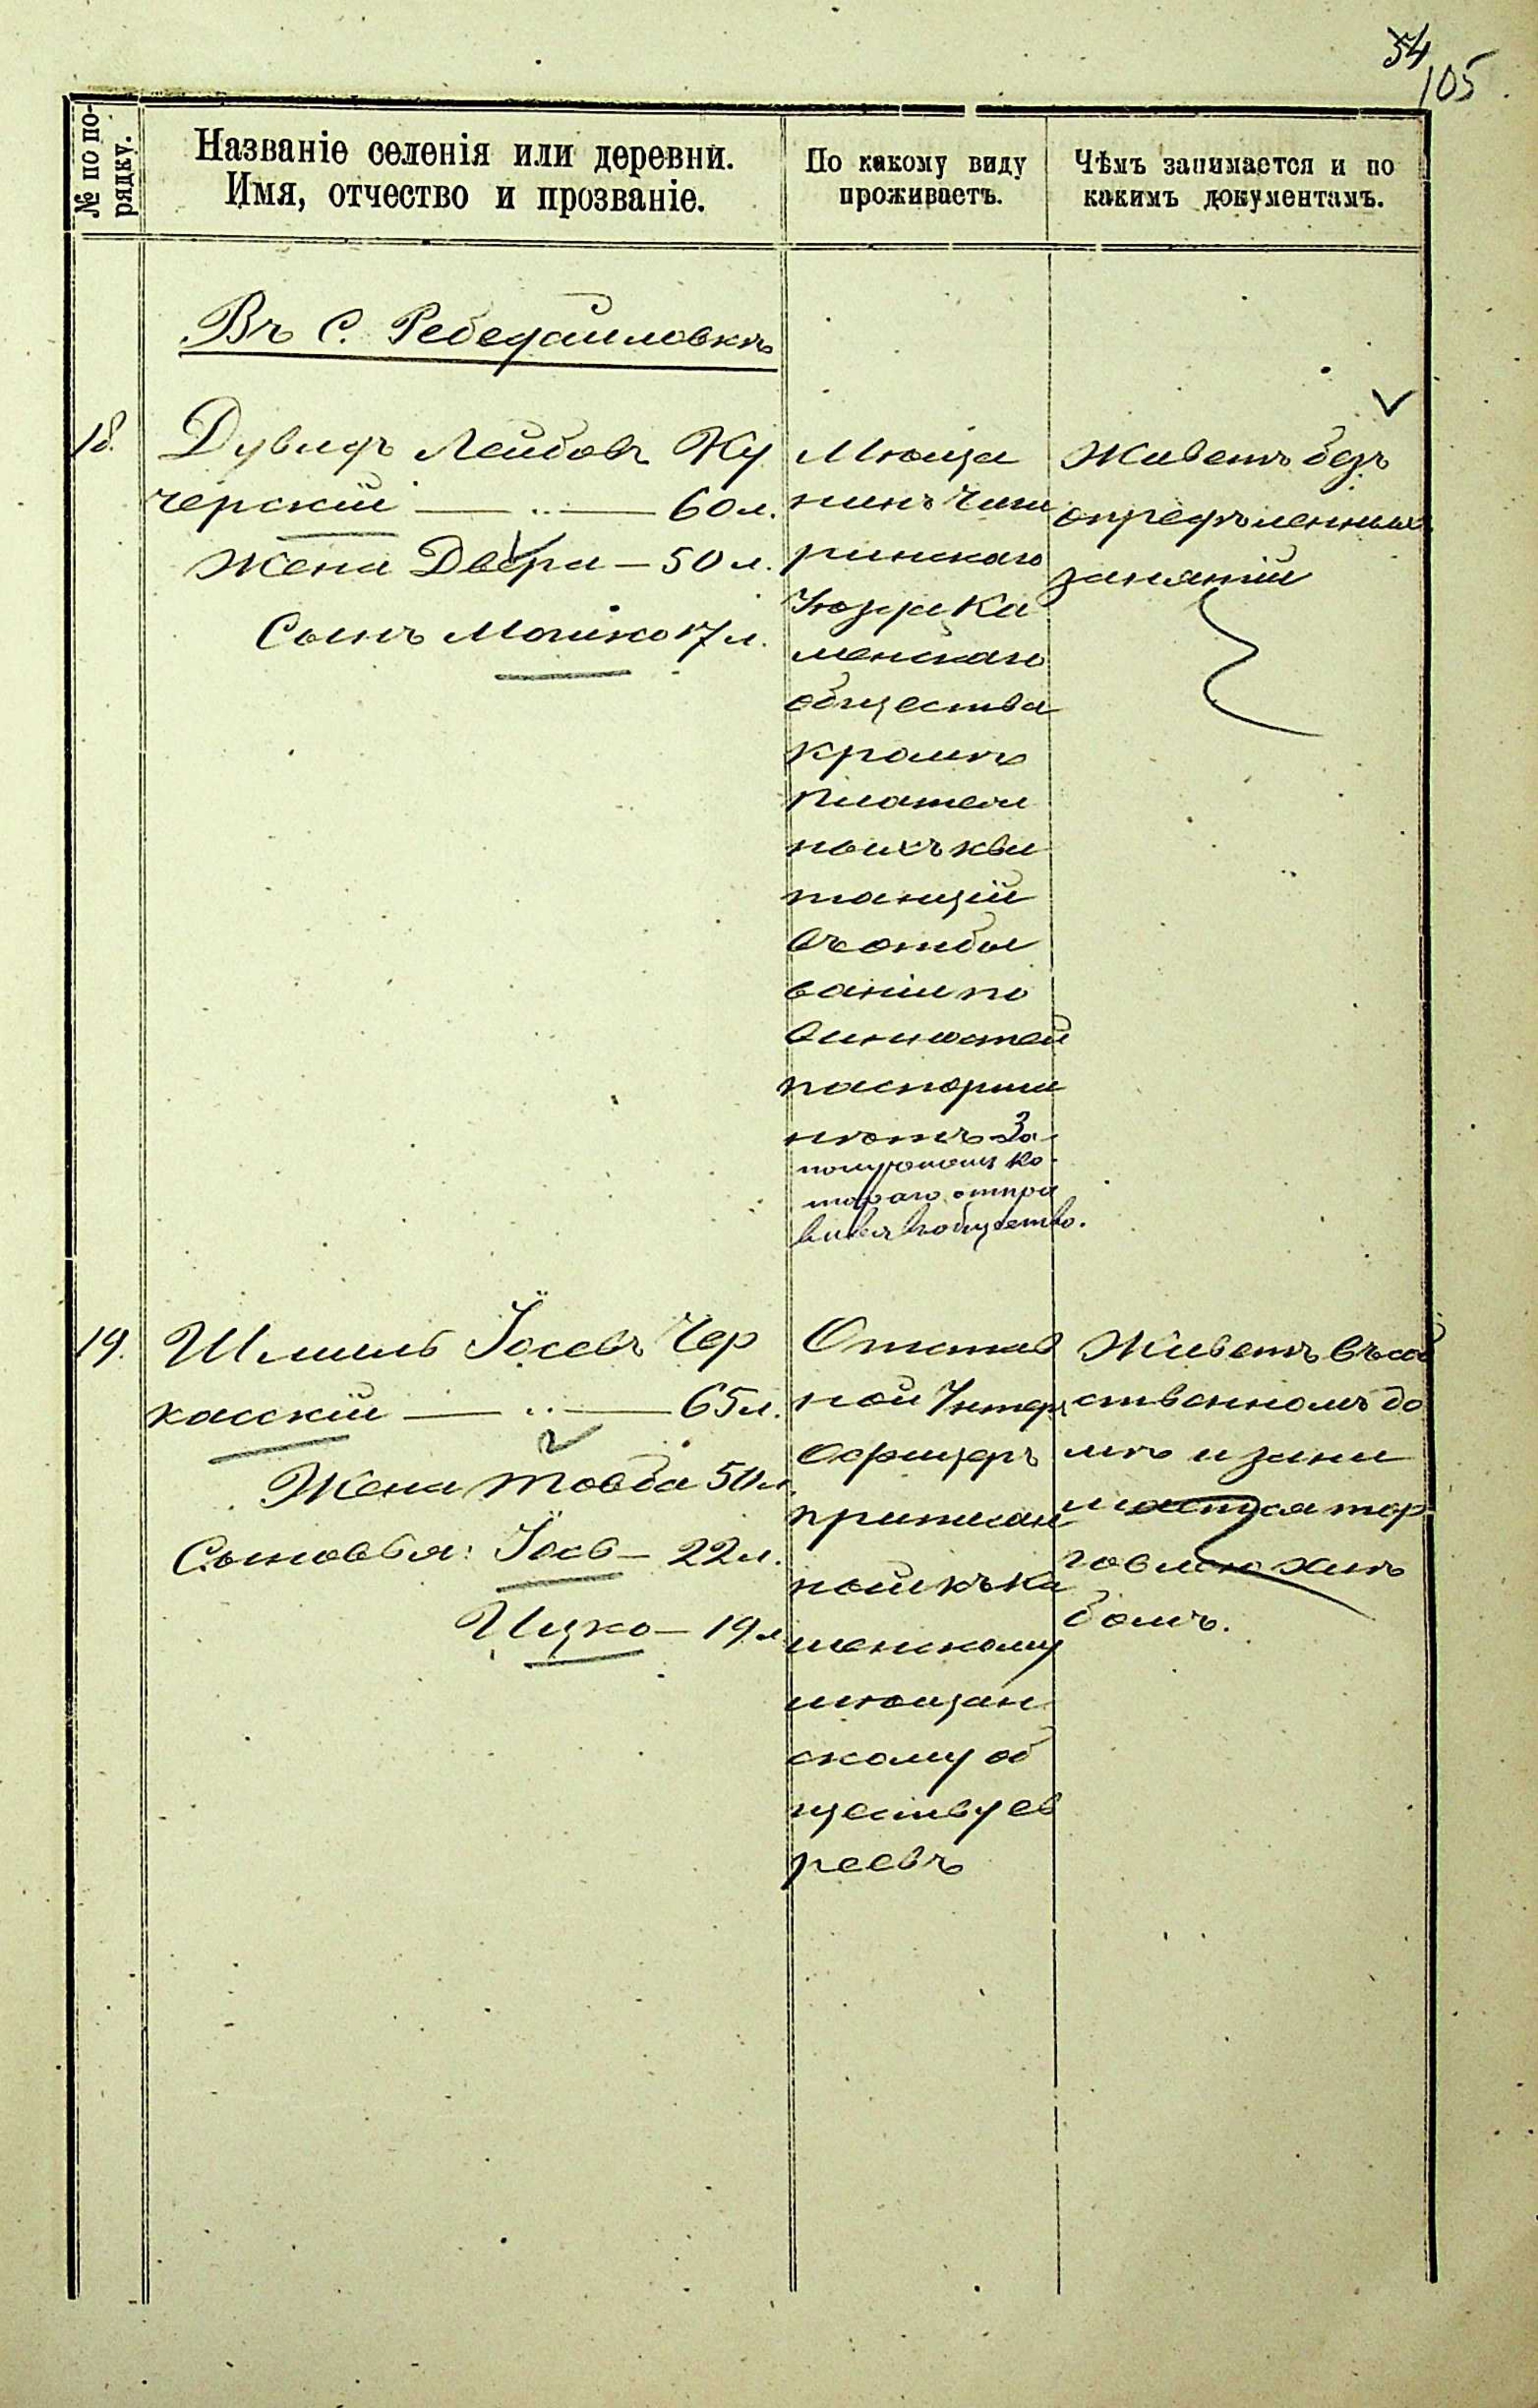 54
105
№ по по-
рядку.
Названіе селенія или деревни.
Имя, отчество и прозваніе.
По какому виду
проживаетъ.
Чѣмъ занимается и по
какимъ документамъ.
Въ С. Ребедайловкѣ
18.
Дувидъ Лейбовъ Ку
черскій — .. — 60 л.
Жена Двера — 50 л.
Сынъ Мошко 17 л.
Мѣща
нинъ Чиги
ринскаго
Уѣзда Ка
менскаго
общества
кромѣ
платеж
ныхъ кви
танцій
въ отбы
ваніи по
винностей
паспорта
нѣтъ За
получениемъ ко-
тораго отпра
вился въ общество.
Живетъ безъ
опредѣленныхъ
занятій
19.
Шмиль Іосевъ Чер
касскій — .. — 65 л.
Жена Товба 50 л.
Сыновья: Іосъ — 22 л.
Ицко — 19 л.
Отстав
ной Унтеръ
Офицеръ
приписан
ной къ Ка
менскому
мѣщан
скому об
ществу ев
реевъ
Живетъ въ соб
ственномъ до
мѣ и зани
мается тор
говлею хлѣ
бомъ.